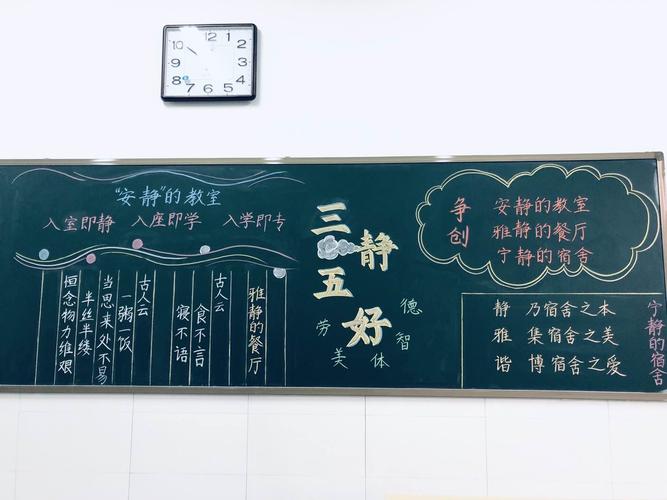 12 1 2 3 4 5 6 7 8 9 10
"安静"的教室
入室即静 入座即学 入学即专
雅静的餐厅
古人云
食不言
寝不语
古人云
一粥一饭
当思来处不易
半丝半缕
恒念物力维艰
三静
五好
德
智
体
美
劳
争创
安静的教室
雅静的餐厅
宁静的宿舍
宁静的宿舍
静 乃宿舍之本
雅 集宿舍之美
谐 博宿舍之爱